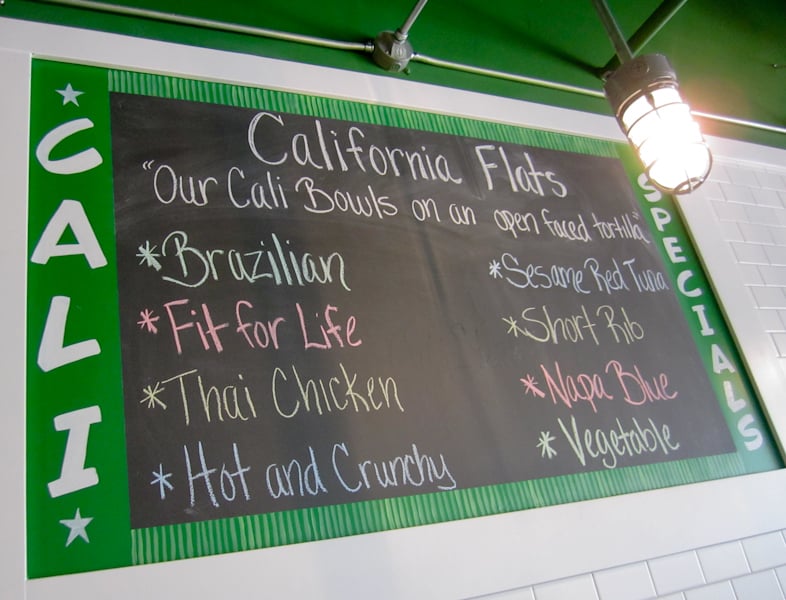 CALI
California Flats
"Our Cali Bowls on an open faced tortilla"
*Brazilian
*Fit for Life
*Thai Chicken
*Hot and Crunchy
*Sesame Red Tuna
*Short Rib
*Napa Blue
*Vegetable
SPECIALS